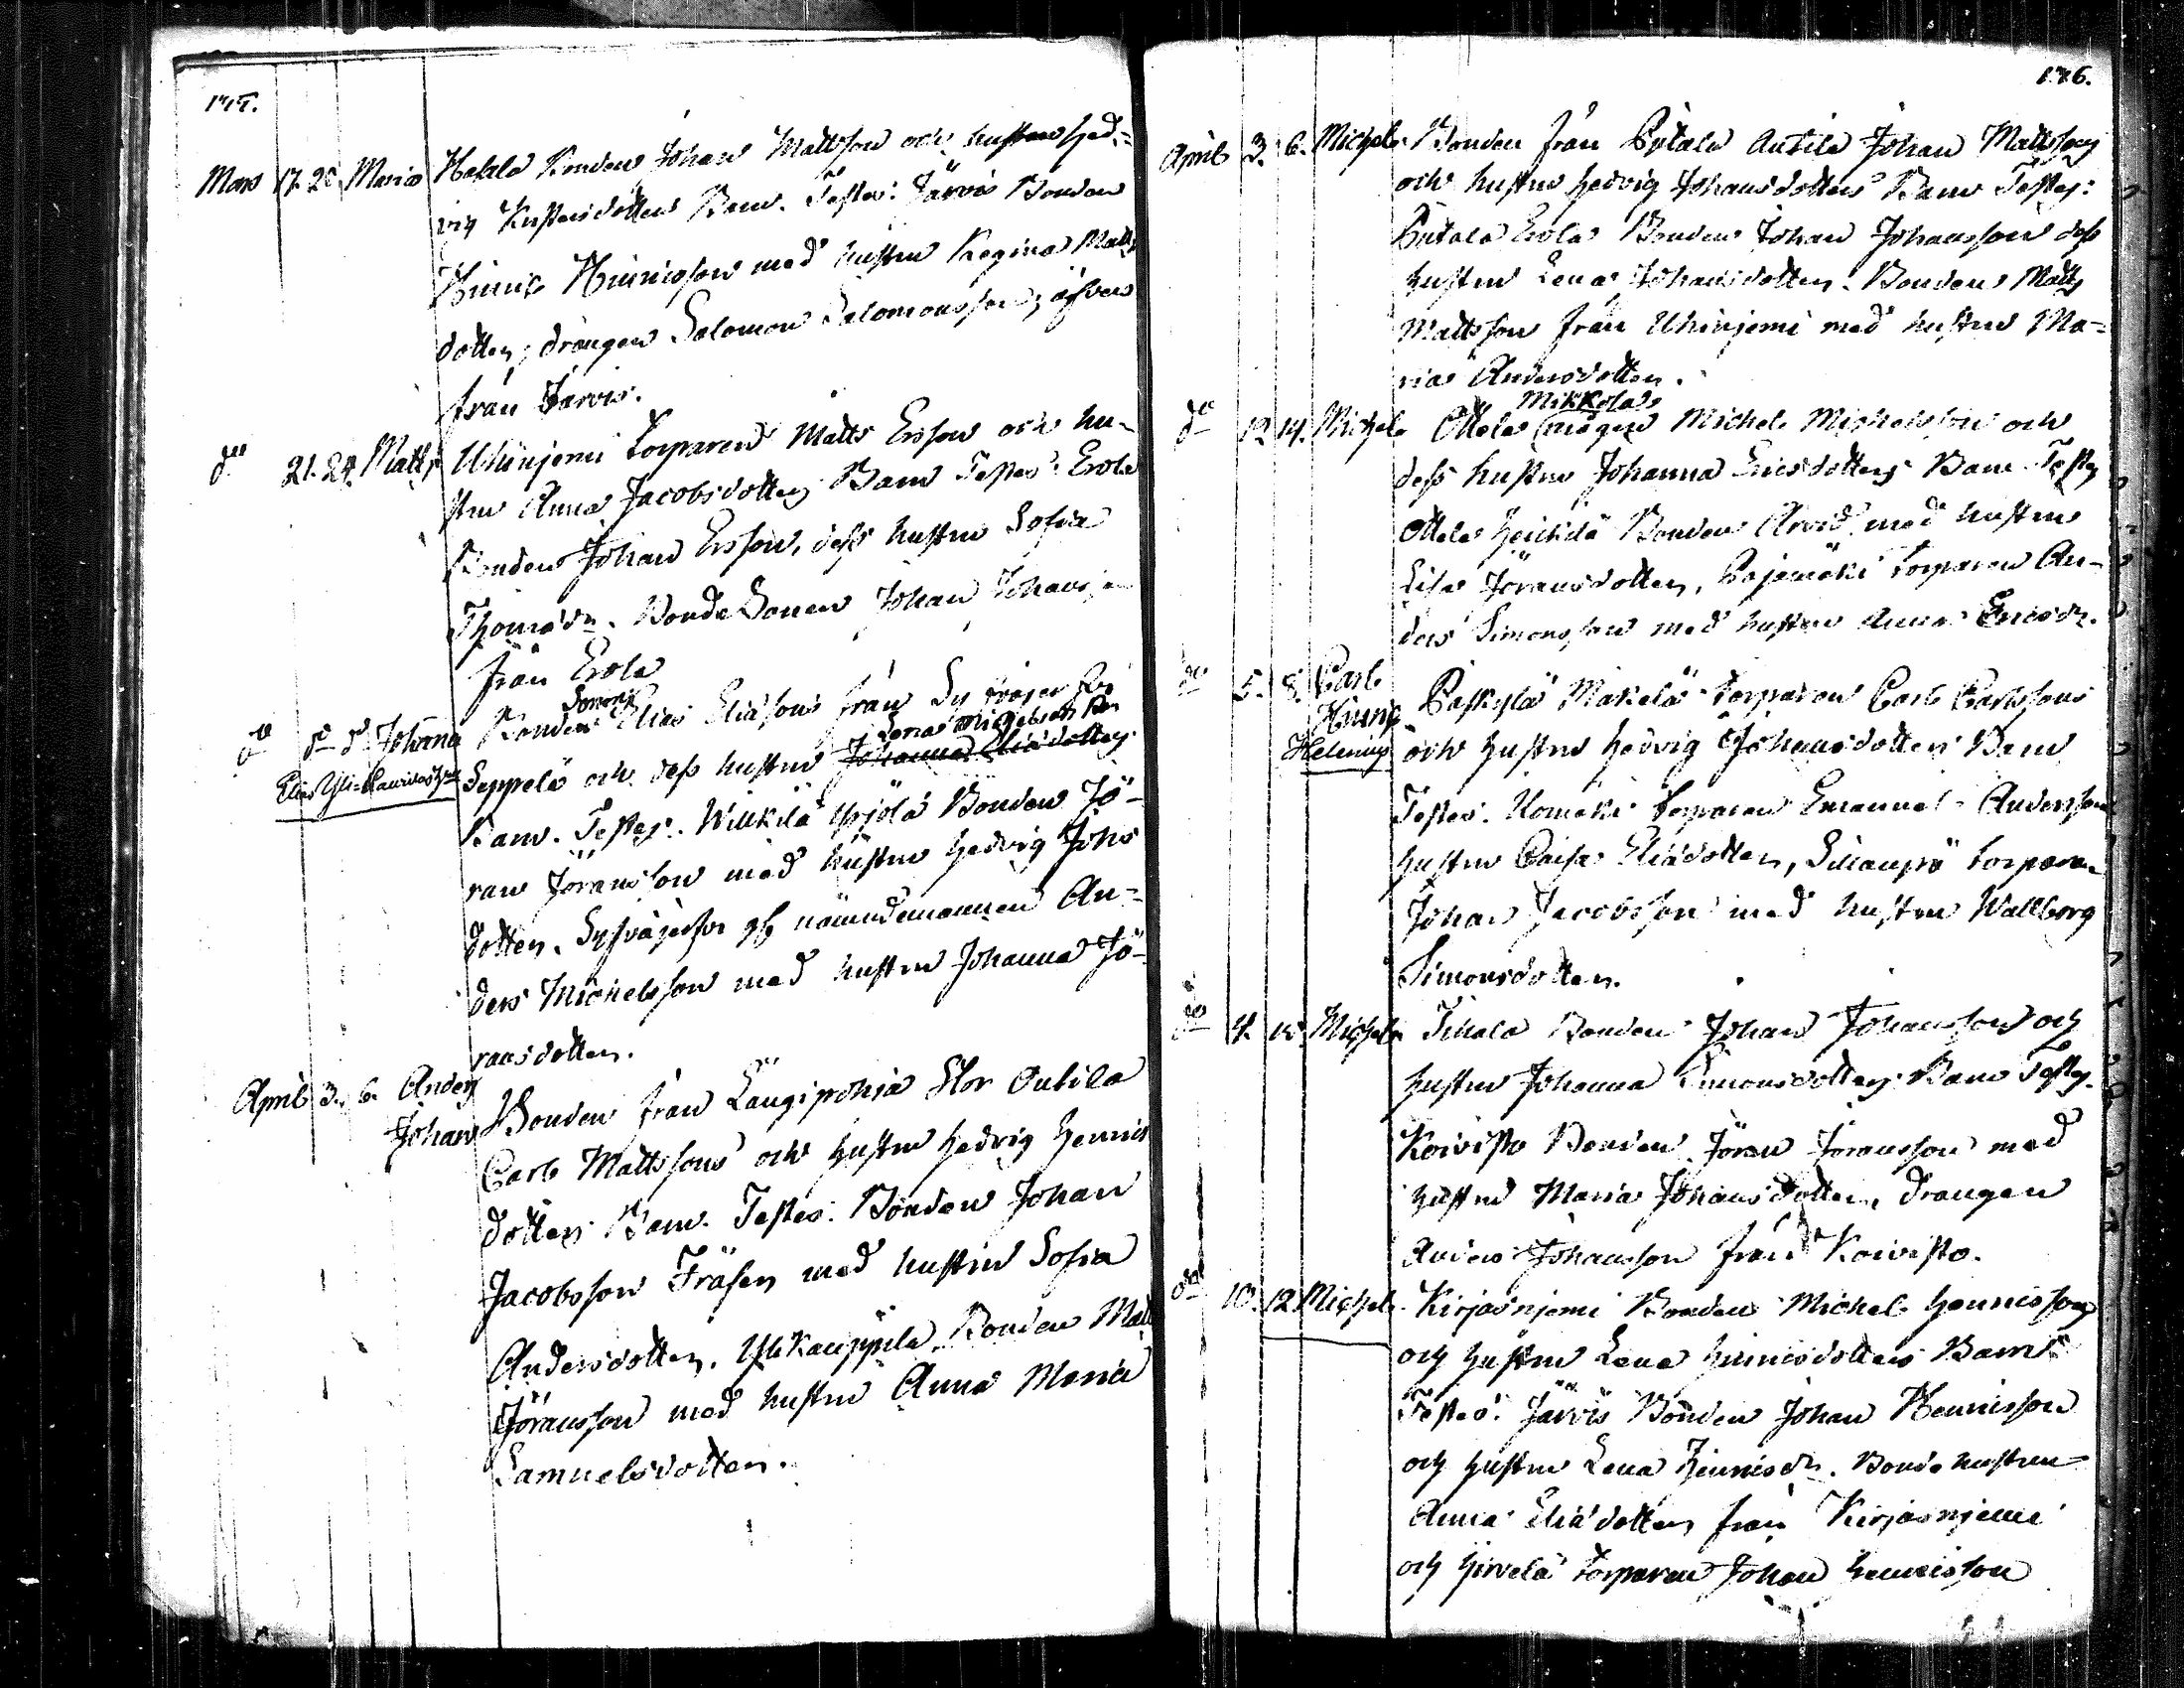 175.
Mars 17. 20. Maria Hakala Bonden Johan Mattsson och hustrun Hed=
vig Kustersdotters Barn. Testes: Järvi Bonden
Hinric Hinricsson med hustru Regina Matts
dotter, drängen Salomon Salomonsson, äfven
från Järvis.
do 21. 24. Matts Uhinjemi Torparen Matts Ersson och hu-
stru Anna Jacobsdotters Barn Testes: Erola
Bonden Johan Ersson, dess hustru Sofia
Thomædr. Bonde Sonen Johan Johansson
från Erola
do do do Johanna Bonden Elias Eliasons från
Sonens
Elias Yli-
Seppelä och dess hustru Johanna Eliædotters
Lena Michelsdotters
Barn. Testes: Yrjölä Bonden Jö-
ran Jöransson med hustru Hedvig Johs
dotter. nämndemannen An=
ders Michelsson med hustru Johanna Jö-
ransdotter.
April 3. 6. Anders Johan
Bonden från Längipohja Stor Antila
Carl Mattssons och hustru Hedvig Henrics
dotters Barn. Testes: Bonden Johan
Jacobsson Fräsen med hustru Sofia
Andersdotter, Bonden Matts
Jöransson med hustru Anna Maria
Samuelsdotter.
176.
April 3. 6. Michel Bonden från Pytala Antila Johan Mattssons
och hustru Hedvig Johansdotters Barn Testes:
Erola Bonden Johan Johansson dess
hustru Lena Johansdotter. Bonden Matts
Mattsson från Uhinjemi med hustru Ma=
ria Andersdotter.
Mikkola
do 12 14. Michel Ottela mågen Michel Michelsson och
dess hustru Johanna Ericsdotters Barn Testes
Ottela Heickilä Bonden Arvid med hustru
Lisa Jöransdotter, Pajamäki Torparen An-
ders Simonsson med hustru Anna Ericsdr.
do 5. 8. Carl Hinric Helenius
Mäkelä Torparen Carl Carlssons
och hustru Hedvig Johansdotters Barn
Testes. Torparen Emanuel Andersson
hustru Caisa Eliædotter, Torparen
Johan Jacobsson med hustru Wallborg
Simonsdotter.
do 4. Michel Bonden Johan Johansson och
hustru Johanna Simonsdotters Barn Testes.
Koivisto Bonden Jöran Jöransson med
hustru Maria Johansdotter, drängen
Anders Johansson från Koivisto.
do 10. 12. Michel Kirjasnjemi Bonden Michel Henricssons
och hustru Lena Hinricsdotters Barn
Testes: Järvis Bonden Johan Henricsson
och hustru Lena Henricsdr. Bonde hustrun
Anna Eliædotter från Kirjasnjemi
och Hirvelä Torparen Johan Henricsson